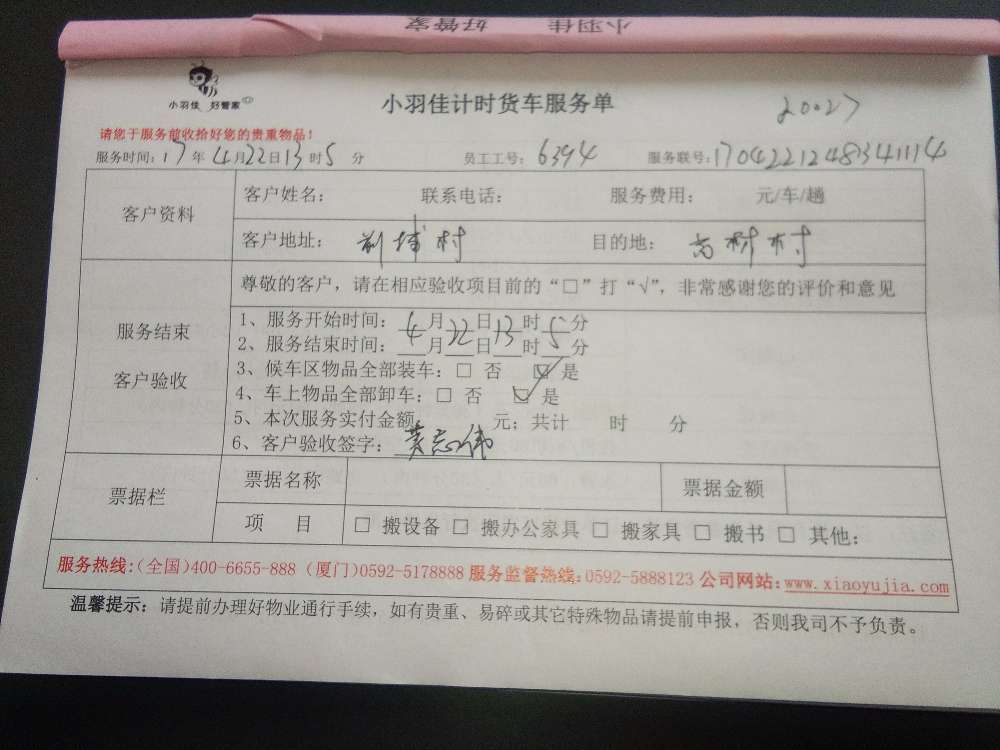 小羽佳 好管家
小羽佳 好管家
小羽佳计时货车服务单
20027
请您于服务前收拾好您的贵重物品!
服务时间:17年4月22日13时5分 员工工号:6394 服务联号:
客户资料 客户姓名: 联系电话: 服务费用: 元/车/趟
客户地址:前埔村 目的地:
尊敬的客户,请在相应验收项目前的“□”打“√”,非常感谢您的评价和意见
服务结束
客户验收
1、服务开始时间:4月22日13时5分
2、服务结束时间:__月__日__时__分
3、候车区物品全部装车:□ 否 ☑ 是
4、车上物品全部卸车:□ 否 ☑ 是
5、本次服务实付金额 元;共计 时 分
6、客户验收签字:黄志伟
票据栏 票据名称 票据金额
项 目 □ 搬设备 □ 搬办公家具 □ 搬家具 □ 搬书 □ 其他:
服务热线:(全国)400-6655-888 (厦门)0592-5178888 服务监督热线:0592-5888123 公司网站:www.xiaoyujia.com
温馨提示:请提前办理好物业通行手续,如有贵重、易碎或其它特殊物品请提前申报,否则我司不予负责。